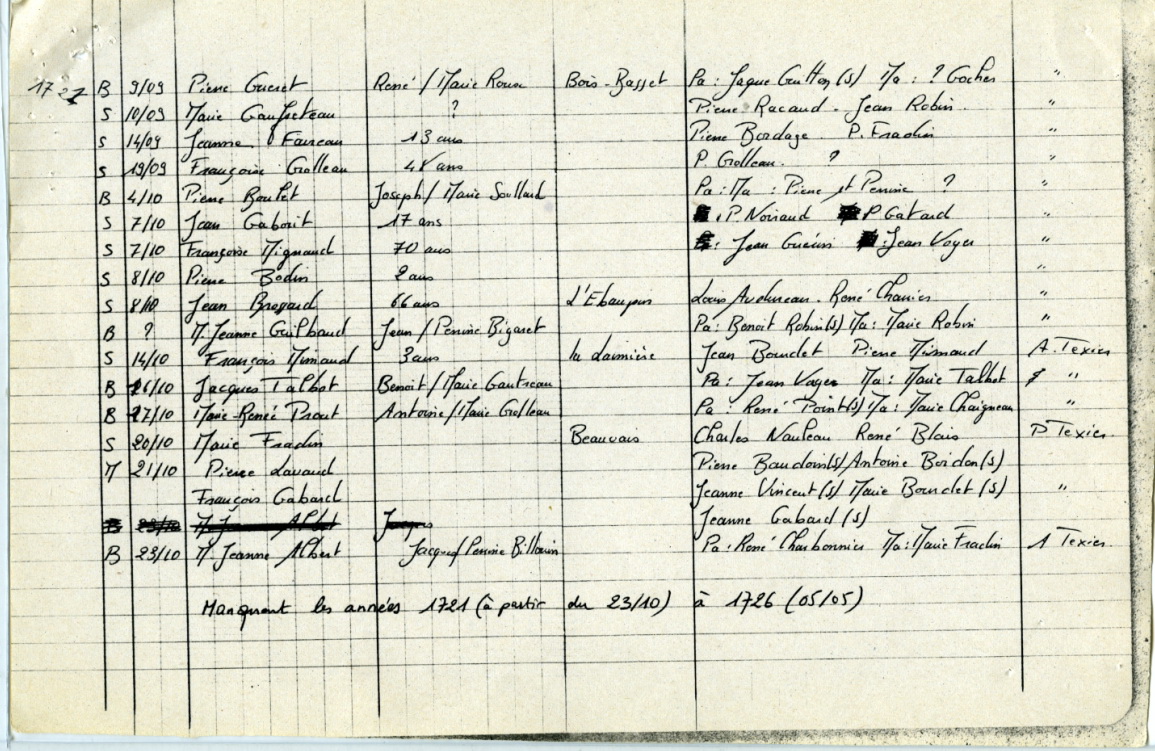 1721 B 9/09 Pierre Gueret René / Marie Roux Bois-Basset Pa : Jaque Guitton (s) Ma : ? Gocher "
S 10/09 Marie ? Pierre Racaud . Jean Robin "
S 14/09 Jeanne Faureau 13 ans Pierre Bordage P. Fradin "
S 19/09 Françoise Grolleau 48 ans P. Grolleau . ? "
B 4/10 Pierre Boulet Joseph / Marie Soullard Pa : Ma : Pierre et Perrine ? "
S 7/10 Jean Gaborit 17 ans : P. Noiraud : P Gatard
S 7/10 Françoise Mignaud 70 ans : Jean Guérin : Jean Voyer "
S 8/10 Pierre Bodin 2 ans "
S 8/10 Jean Brogard 66 ans L'Ebaupin Louis Audureau . René Charrier "
B ? M. Jeanne Guilbaud Jean / Perrine Bigaret Pa : Benoit Robin (s) Ma : Marie Robin "
S 14/10 François Mimaud 3 ans la Larnière Jean Boudet Pierre Mimaud A. Texier
B 16/10 Jacques Talbot Benoit / Marie Gautreau Pa : Jean Voyer Ma : Marie Talbot "
B 17/10 Marie-Renée Prout Antoine / Marie Grolleau Pa : René Point (s) Ma : Marie Chaigneau "
S 20/10 Marie Fradin Beauvais Charles Nauleau René Blais P Texier
M 21/10 Pierre Lavaud Pierre Baudouin (s) / Antoine Bordon (s)
François Gabard Jeanne Vincent (s) Marie Bourdet (s) "
B 23/10 M Jeanne Albert Jacques Jeanne Gabard (s)
B 23/10 M Jeanne Albert Jacques / Perrine Billarin Pa : René Charbonnier Ma : Marie Fradin A Texier
Manquent les années 1721 (à partir du 23/10) à 1726 (05/05)